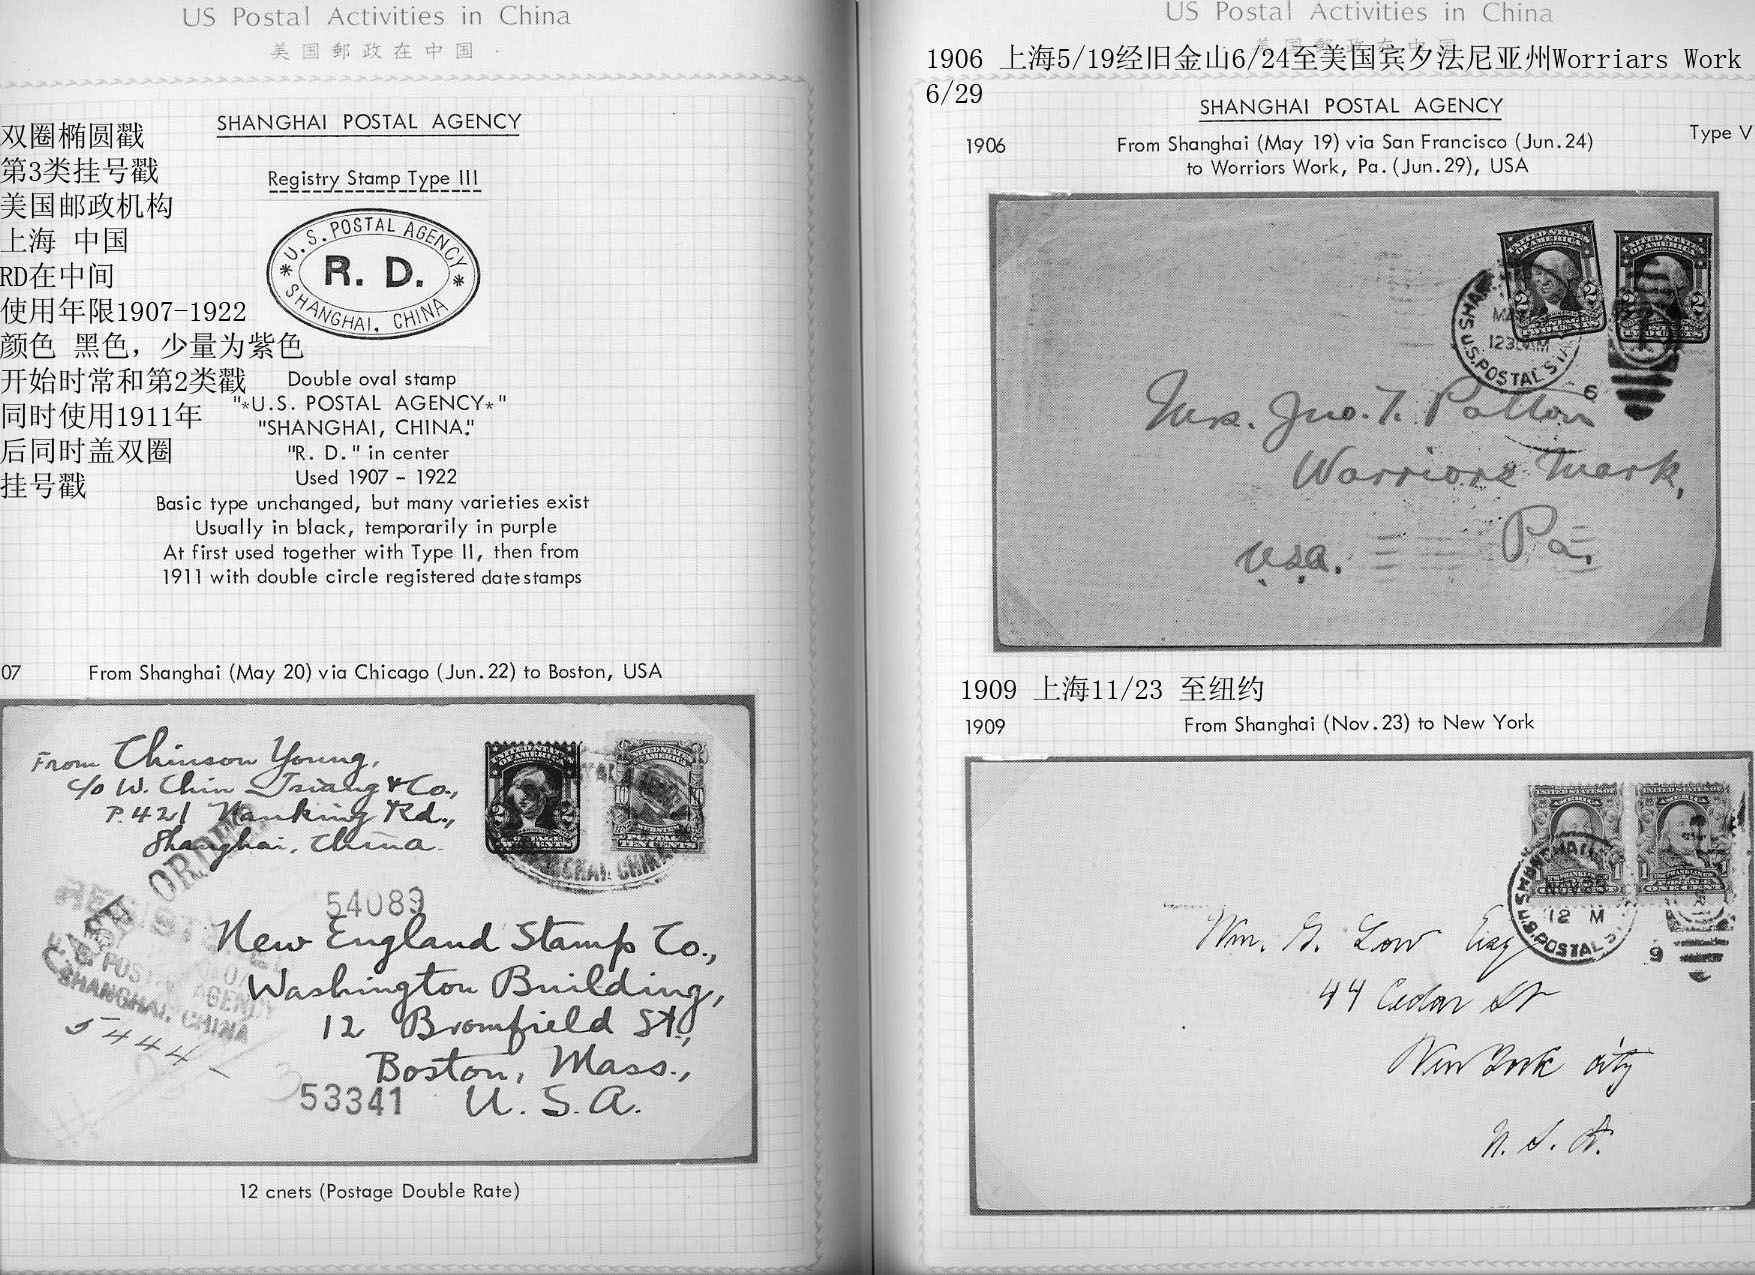 US Postal Activities in China
美国郵政在中国
双圈椭圆戳
第3类挂号戳
美国邮政机构
上海 中国
RD在中间
使用年限1907-1922
颜色 黑色，少量为紫色
开始时常和第2类戳
同时使用1911年
后同时盖双圈
挂号戳
SHANGHAI POSTAL AGENCY
Registry Stamp Type III
*U.S. POSTAL AGENCY*
R. D.
SHANGHAI, CHINA
Double oval stamp
"*U.S. POSTAL AGENCY*"
"SHANGHAI, CHINA."
"R. D." in center
Used 1907 - 1922
Basic type unchanged, but many varieties exist
Usually in black, temporarily in purple
At first used together with Type II, then from
1911 with double circle registered datestamps
07 From Shanghai (May 20) via Chicago (Jun.22) to Boston, USA
From Chinson Young,
c/o W. Chin Tsiang & Co.,
P.421 Nanking Rd.,
Shanghai, China.
UNITED STATES
OF AMERICA
2 2
10
TEN CENTS
SHANGHAI, CHINA
54089
New England Stamp Co.,
Washington Building,
12 Bromfield St.,
Boston, Mass.,
U. S. A.
53341
SHANGHAI, CHINA
5444
12 cnets (Postage Double Rate)
US Postal Activities in China
美国郵政在中国
1906 上海5/19经旧金山6/24至美国宾夕法尼亚州Worriars Work
6/29
SHANGHAI POSTAL AGENCY
Type V
1906 From Shanghai (May 19) via San Francisco (Jun.24)
to Worriors Work, Pa.(Jun.29), USA
UNITED STATES
OF AMERICA
2 2
UNITED STATES
OF AMERICA
2 2
U.S. POSTAL STA
6
Mrs. Jno. T. Patton
Warriors Mark,
Pa.
U.S.A.
1909 上海11/23 至纽约
1909 From Shanghai (Nov.23) to New York
12 M
U.S. POSTAL
9
ONE CENT
Wm. G. Low Esq
44 Cedar St
New York City
U. S. A.